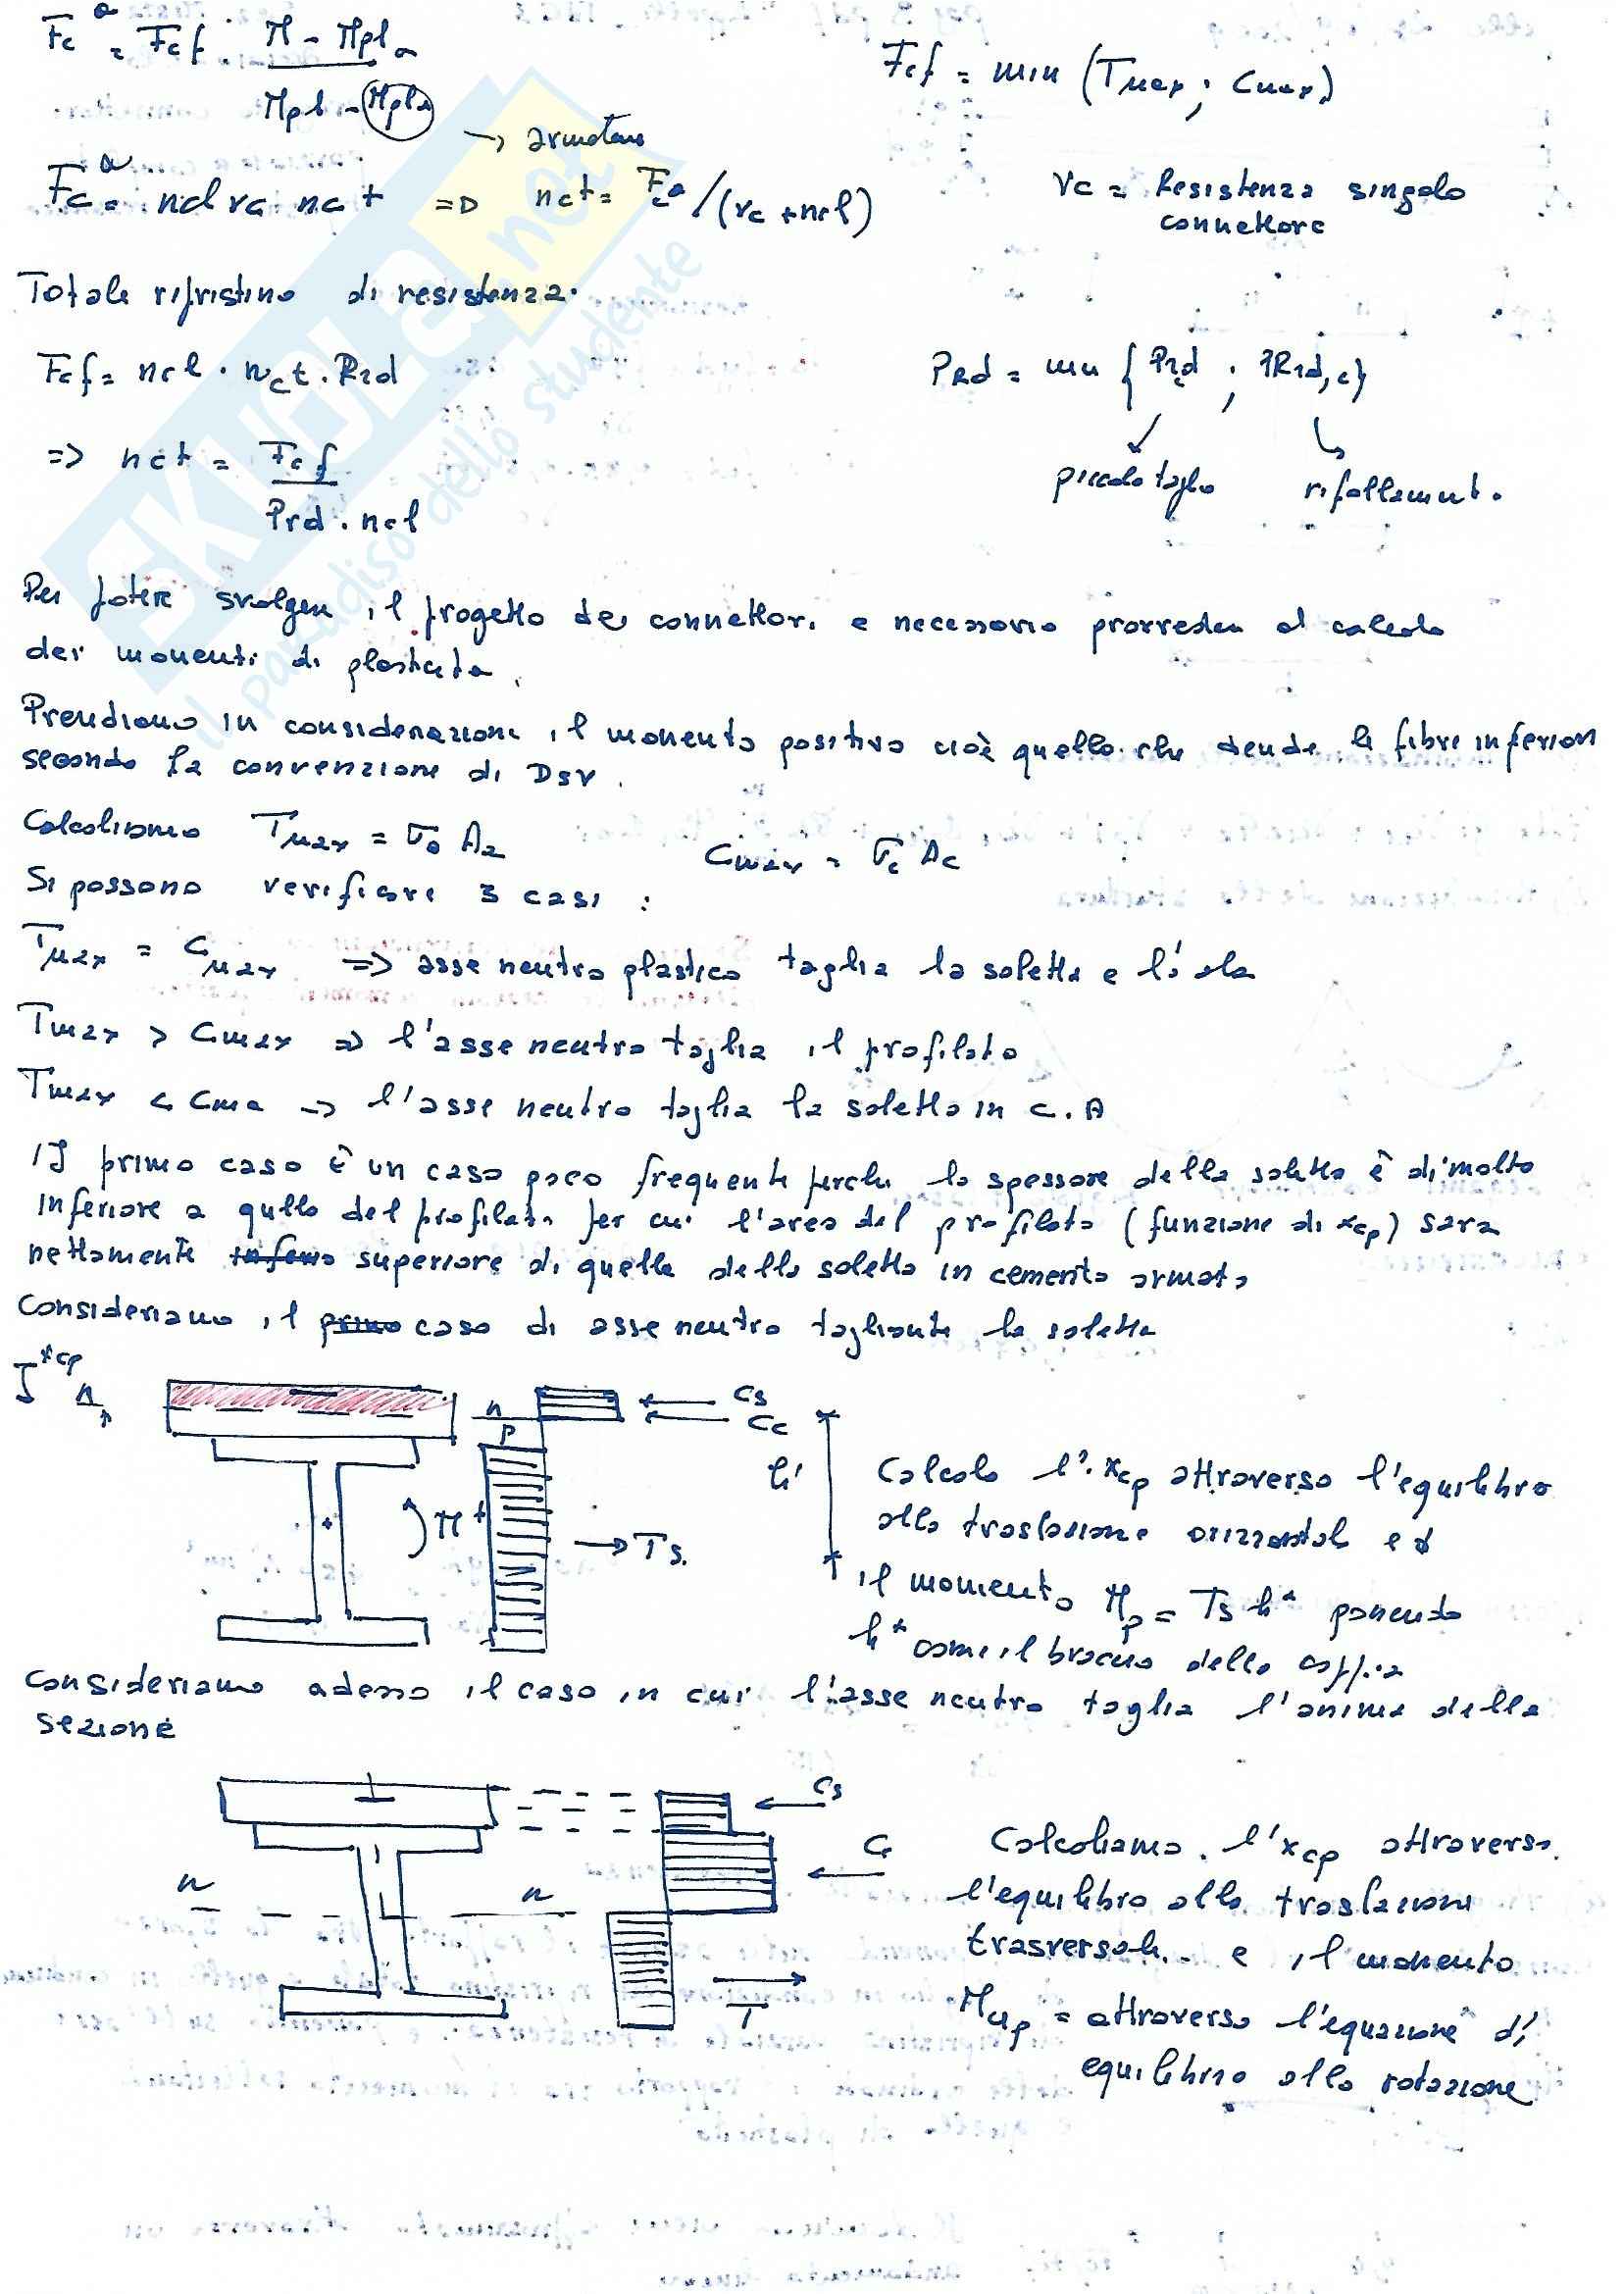 Fc^a = Fcf · (M - Mpl_a) / (Mpl - Mpl_a)
Fcf = min (Tmax ; Cmax)
→ armature
Fc^a = ncl vc nct => nct = Fc^a / (vc + ncl)
vc = Resistenza singolo
connettore
Totale ripristino di resistenza.
Fcf = ncl · nct · PRd
PRd = min { PRd ; PRd,c }
=> nct = Fcf / (Prd · ncl)
piccolo taglio
rifollament.
Per potere svolgere il progetto dei connettori e necessario provvedere al calcolo
dei momenti di plasticita.
Prendiamo in considerazione il momento positivo cioè quello che tende le fibre inferiori
secondo la convenzione di DSV.
Calcoliamo Tmax = σa Aa Cmax = σc Ac
Si possono verificare 3 casi :
Tmax = Cmax => asse neutro plastico taglia la soletta e l'ala
Tmax > Cmax => l'asse neutro taglia il profilato
Tmax < Cma => l'asse neutro taglia la soletta in C.A
Il primo caso è un caso poco frequente perche lo spessore della soletta è di molto
inferiore a qullo del profilato per cui l'area del profilato (funzione di xcp) sara
nettamente superiore di quella della soletta in cemento armato
Consideriamo il primo caso di asse neutro tagliante la soletta
xcp
n
n
p
Cs
Cc
h'
M+
Ts.
Calcolo l' xcp attraverso l'equilibro
alla traslazione orizzontal e
il momento Mp = Ts h* ponendo
h* come il braccio della coppia
Consideriamo adesso il caso in cui l'asse neutro taglia l'anima della
sezione
Cs
C
n
n
T
Calcoliamo l'xcp attraverso
l'equilibro alla traslazioni
trasversali e il momento
Mup = attraverso l'equazione di
equilibrio alla rotazione
SKUOLA.net
il paradiso dello studente